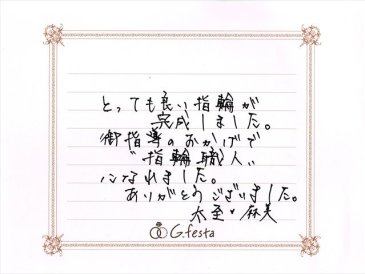 とっても良い指輪が
完成しました。
御指導のおかげで
"指輪職人"
になれました。
ありがとうございました。
太至・麻美
G.festa